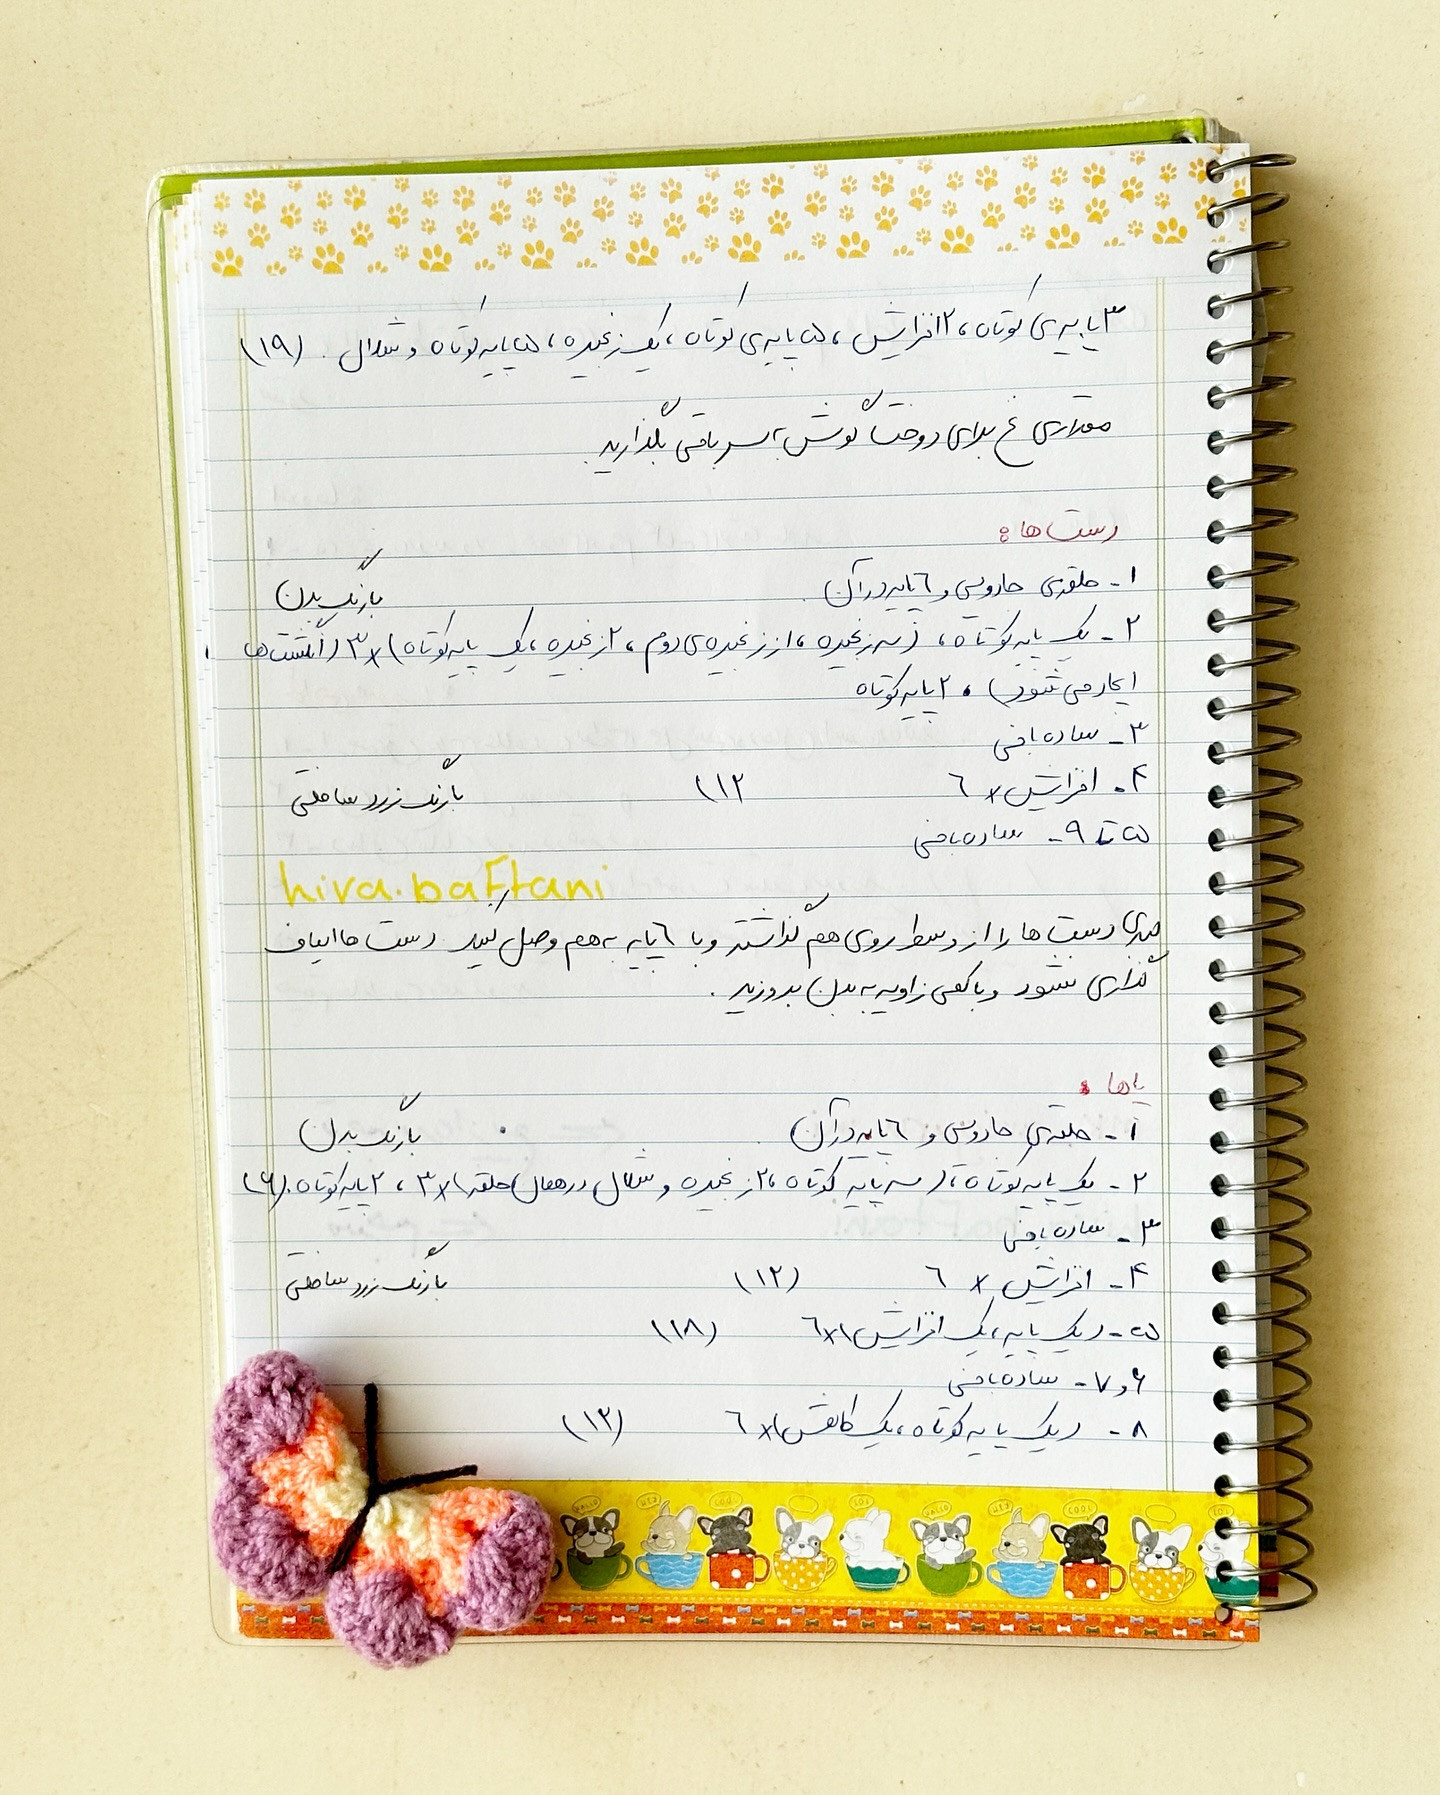 ۳ پایه ی کوتاه، ۲ افزایش، ۵ پایه ی کوتاه، یک زنجیره، ۵ پایه کوتاه و شلال. (۱۹)
مقداری نخ برای دوخت گوش به سر باقی بگذارید.
دست ها:
۱- حلقه ی جادویی و ٦ پایه در آن با رنگ بدن
۲- یک پایه کوتاه، (سه زنجیره، از زنجیره ی دوم، ۲ زنجیره، یک پایه کوتاه) x۳ (انگشت ها
ایجاد می شوند)، ۲ پایه کوتاه
۳- ساده بافی
۴- افزایش x ٦ (۱۲ با رنگ زرد ساحلی
۵ تا ۹- ساده بافی
hiva.baftani
دست ها را از وسط روی هم گذاشته و با ٦ پایه به هم وصل کنید. دست ها الیاف
گذاری نشود و با کمی زاویه به بدن بدوزید.
پاها:
۱- حلقه ی جادویی و ٦ پایه در آن با رنگ بدن
۲- یک پایه کوتاه، (سه پایه کوتاه، ۲ زنجیره و شلال در همان حلقه) x۳، ۲ پایه کوتاه. (۶)
۳- ساده بافی
۴- افزایش x ٦ (۱۲) با رنگ زرد ساحلی
۵- (یک پایه، یک افزایش) x٦ (۱۸)
۶ و ۷- ساده بافی
۸- (یک پایه کوتاه، یک کاهش) x٦ (۱۲)
HELLO COOL LOL HELLO COOL LOL